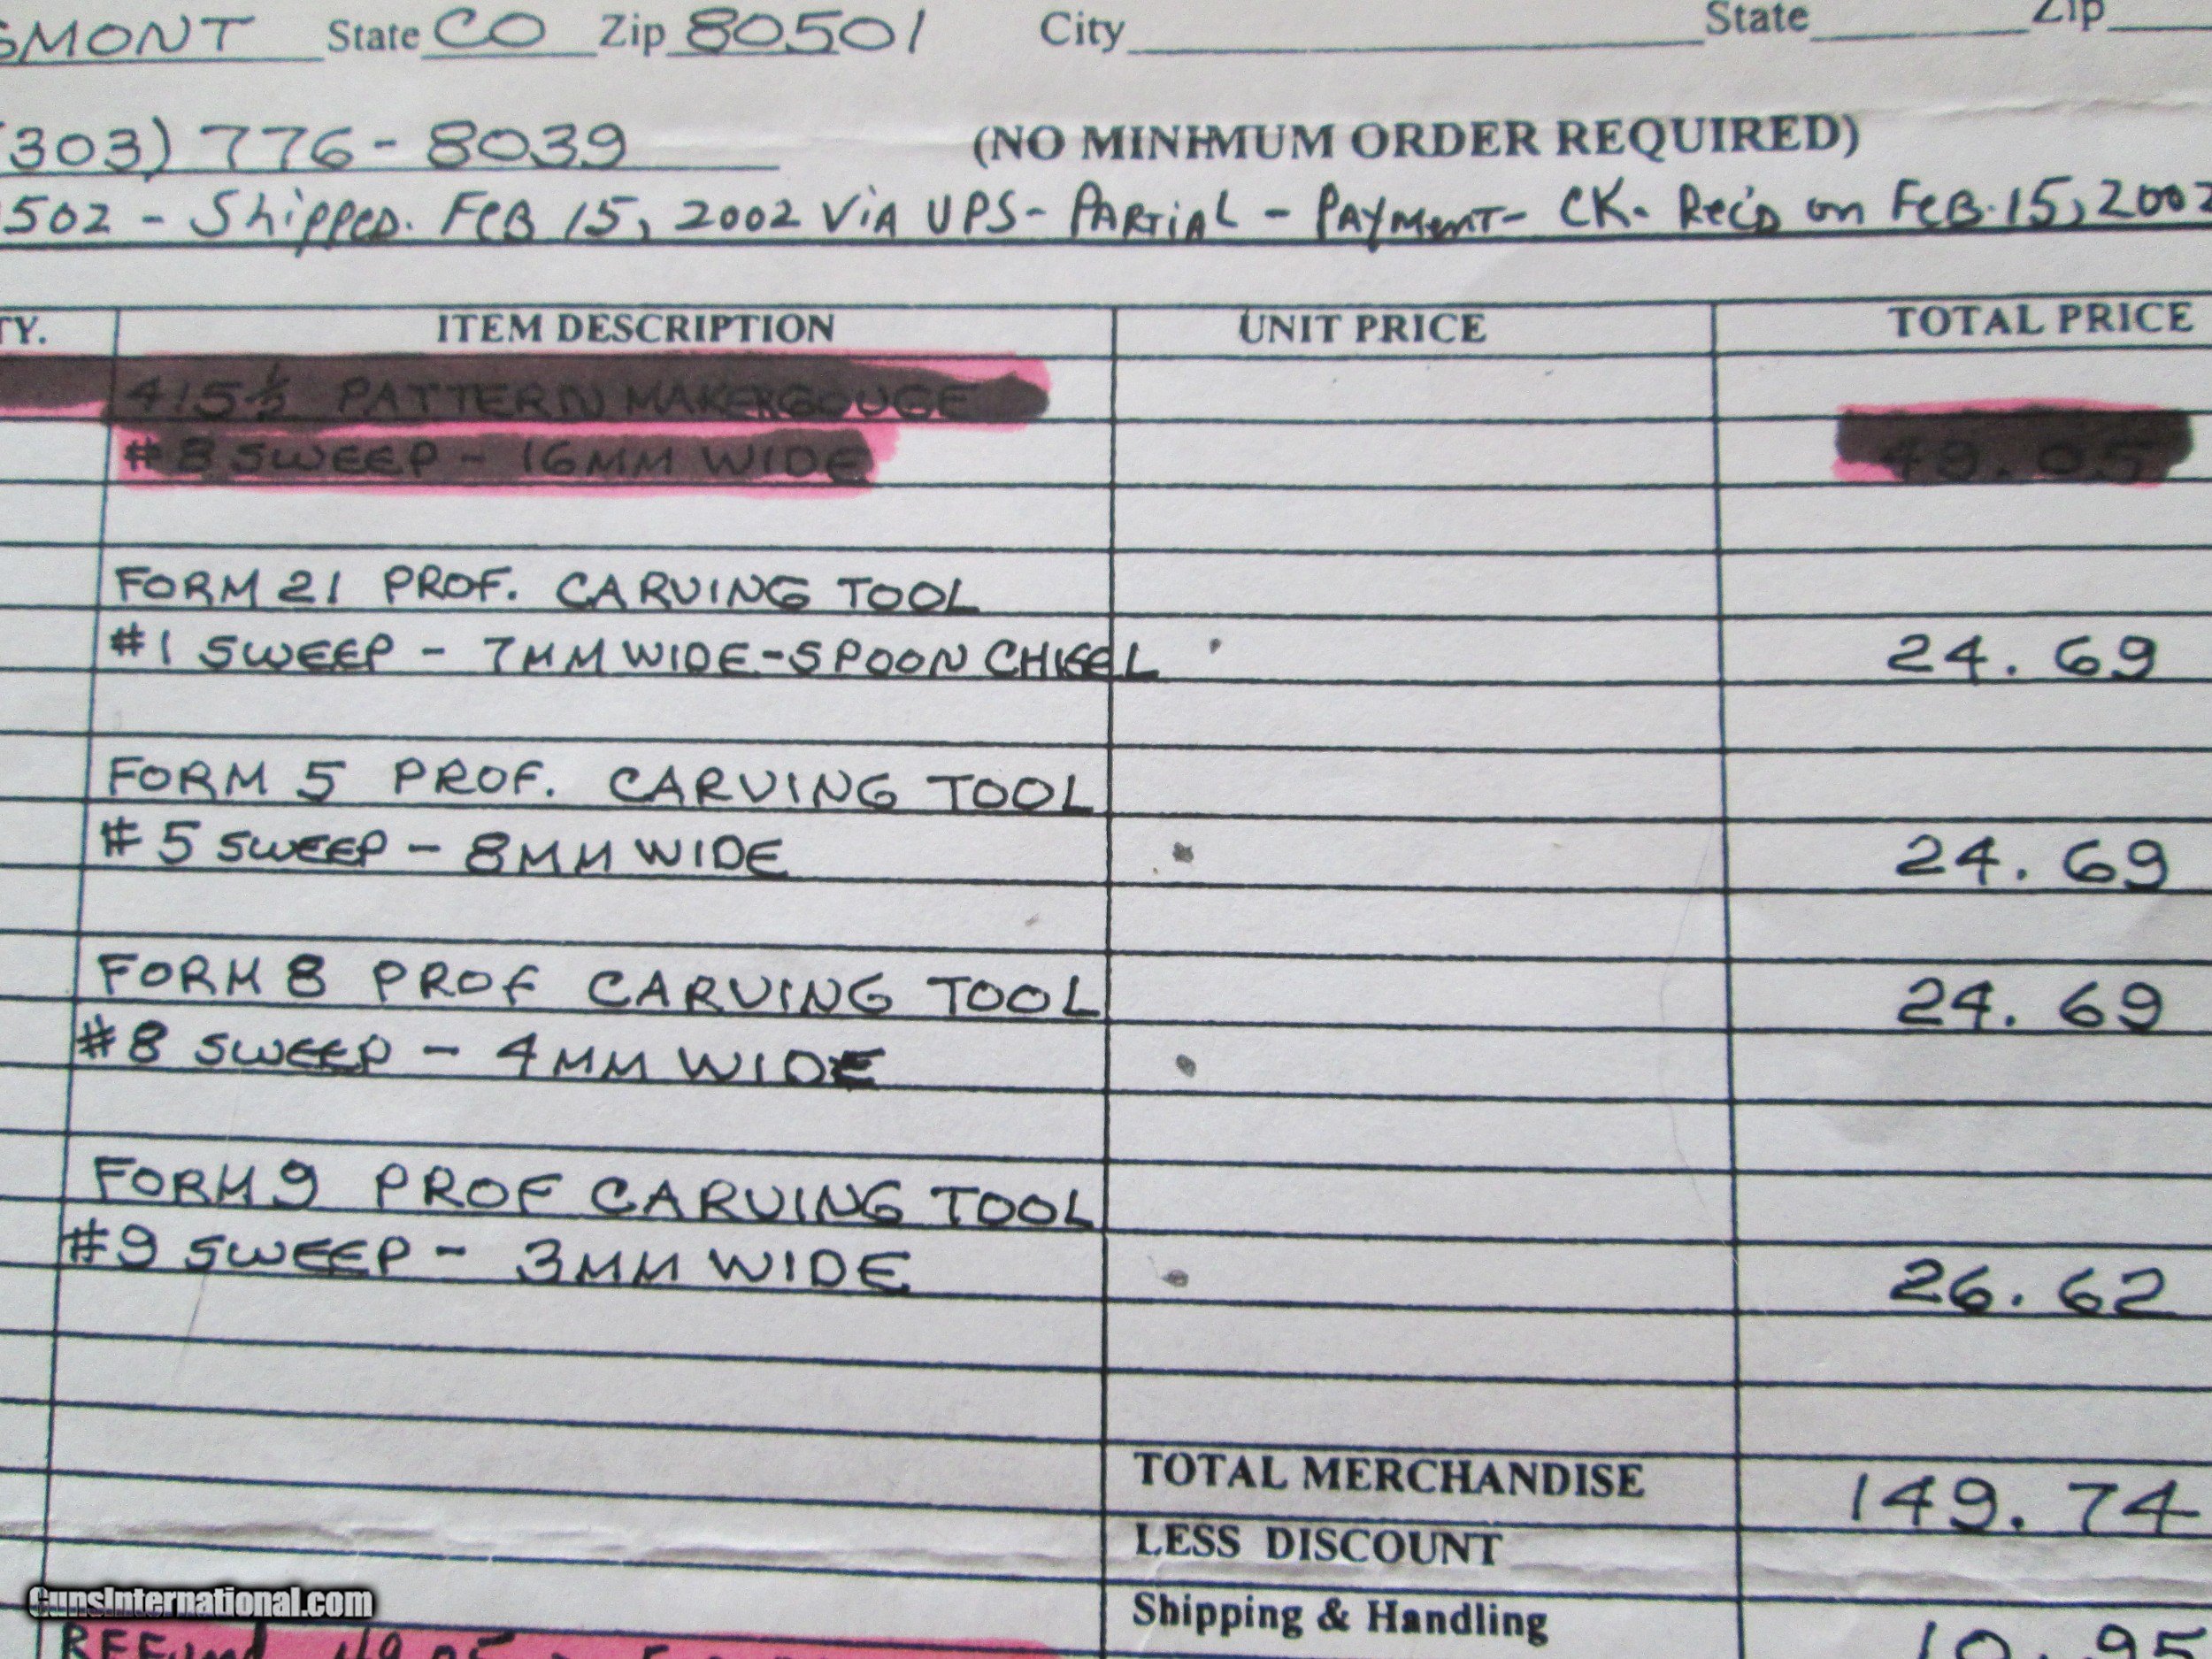 SMONT State CO Zip 80501 City State Zip
(303) 776-8039 (NO MINIMUM ORDER REQUIRED)
502 - Shipped. FEB 15, 2002 ViA UPS - PARTiAL - PAYMENT - CK. Rec'd on FEB. 15, 2002
TY. ITEM DESCRIPTION UNIT PRICE TOTAL PRICE
415½ PATTERN MAKER GOUGE
#8 SWEEP - 16MM WIDE 49.05
FORM 21 PROF. CARVING TOOL
#1 SWEEP - 7MM WIDE - SPOON CHISEL 24.69
FORM 5 PROF. CARVING TOOL
#5 SWEEP - 8MM WIDE 24.69
FORM 8 PROF CARVING TOOL 24.69
#8 SWEEP - 4MM WIDE
FORM 9 PROF CARVING TOOL
#9 SWEEP - 3MM WIDE 26.62
TOTAL MERCHANDISE 149.74
LESS DISCOUNT
Shipping & Handling 10.95
GunsInternational.com
REFund 49.05